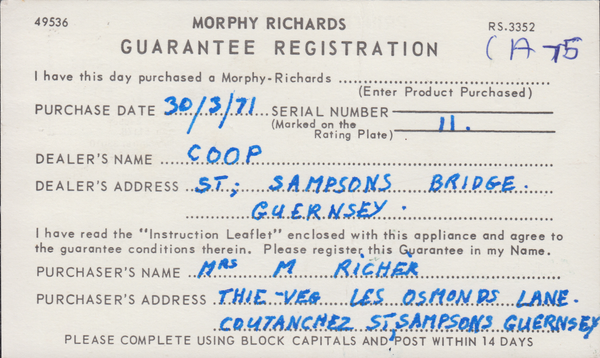 49536 MORPHY RICHARDS RS.3352
GUARANTEE REGISTRATION CA-75
I have this day purchased a Morphy-Richards
(Enter Product Purchased)
PURCHASE DATE 30/3/71 SERIAL NUMBER
(Marked on the Rating Plate) 11.
DEALER'S NAME COOP
DEALER'S ADDRESS ST; SAMPSONS BRIDGE.
GUERNSEY.
I have read the "Instruction Leaflet" enclosed with this appliance and agree to
the guarantee conditions therein. Please register this Guarantee in my Name.
PURCHASER'S NAME MRS M RICHER
PURCHASER'S ADDRESS THIE-VEG LES OSMONDS LANE.
COUTANCHEZ ST, SAMPSONS GUERNSEY
PLEASE COMPLETE USING BLOCK CAPITALS AND POST WITHIN 14 DAYS